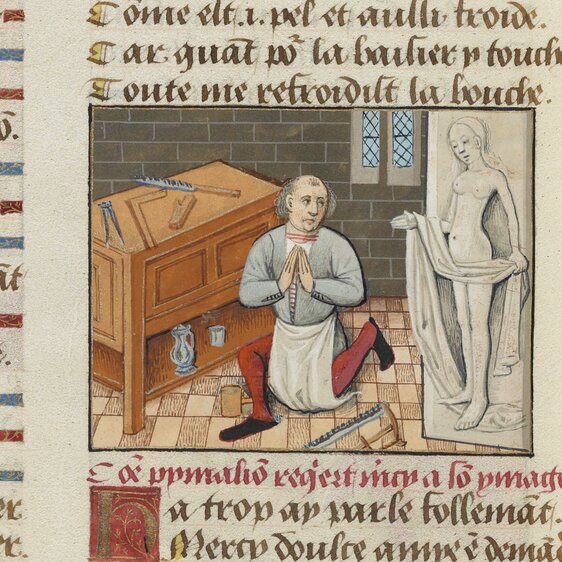 Cõme est .i. pel et aussi froide.
Car quãt po᷑ la baisier y touche
Toute me refroidist la bouche.
Cõe pymaliõ reqert m̃cy a sõ ymage
Ha trop ay parle follemãt.
Mercy doulce amye ẽ demãd